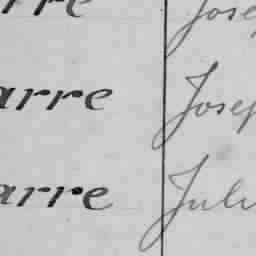 rre Jose
arre Josep
arre Juli